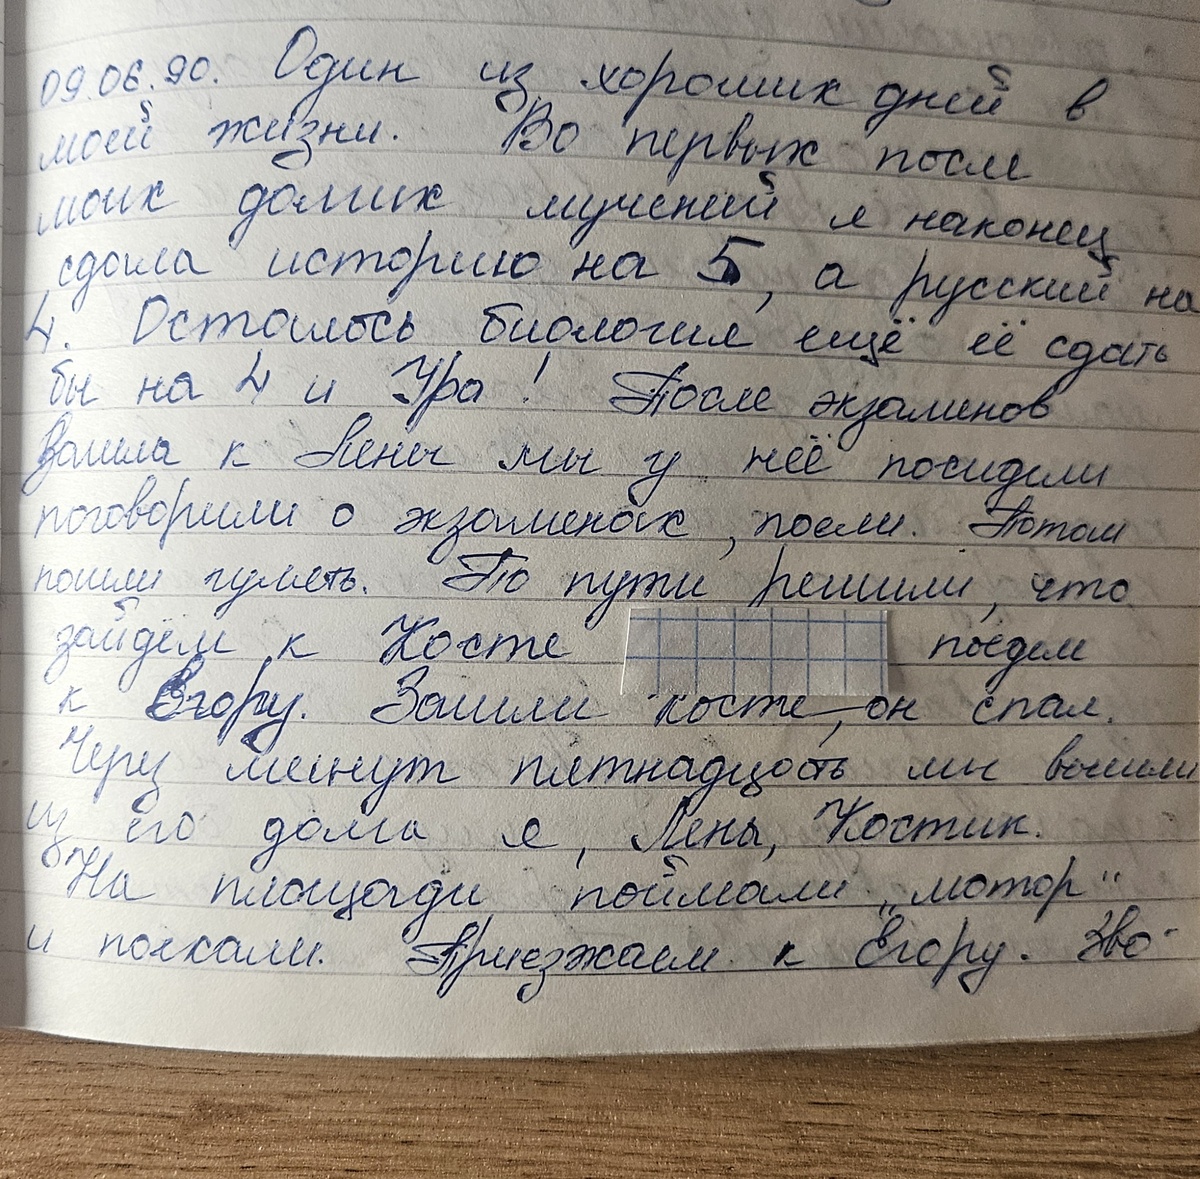 09.06.90. Один из хороших дней в
моей жизни. Во первых после
моих долгих мучений я наконец
сдала историю на 5, а русский на
4. Осталось биология ещё её сдать
бы на 4 и Ура! После экзаменов
Зашла к Лены мы у неё посидели
поговорили о экзаменах, поели. Потом
пошли гулять. По пути решили, что
зайдём к Косте поедем
к Егору. Зашли косте, он спал.
Через минут пятнадцать мы вышли
из его дома я, Лена, Костик.
На площади поймали „мотор"
и поехали. Приезжаем к Егору. Зво-